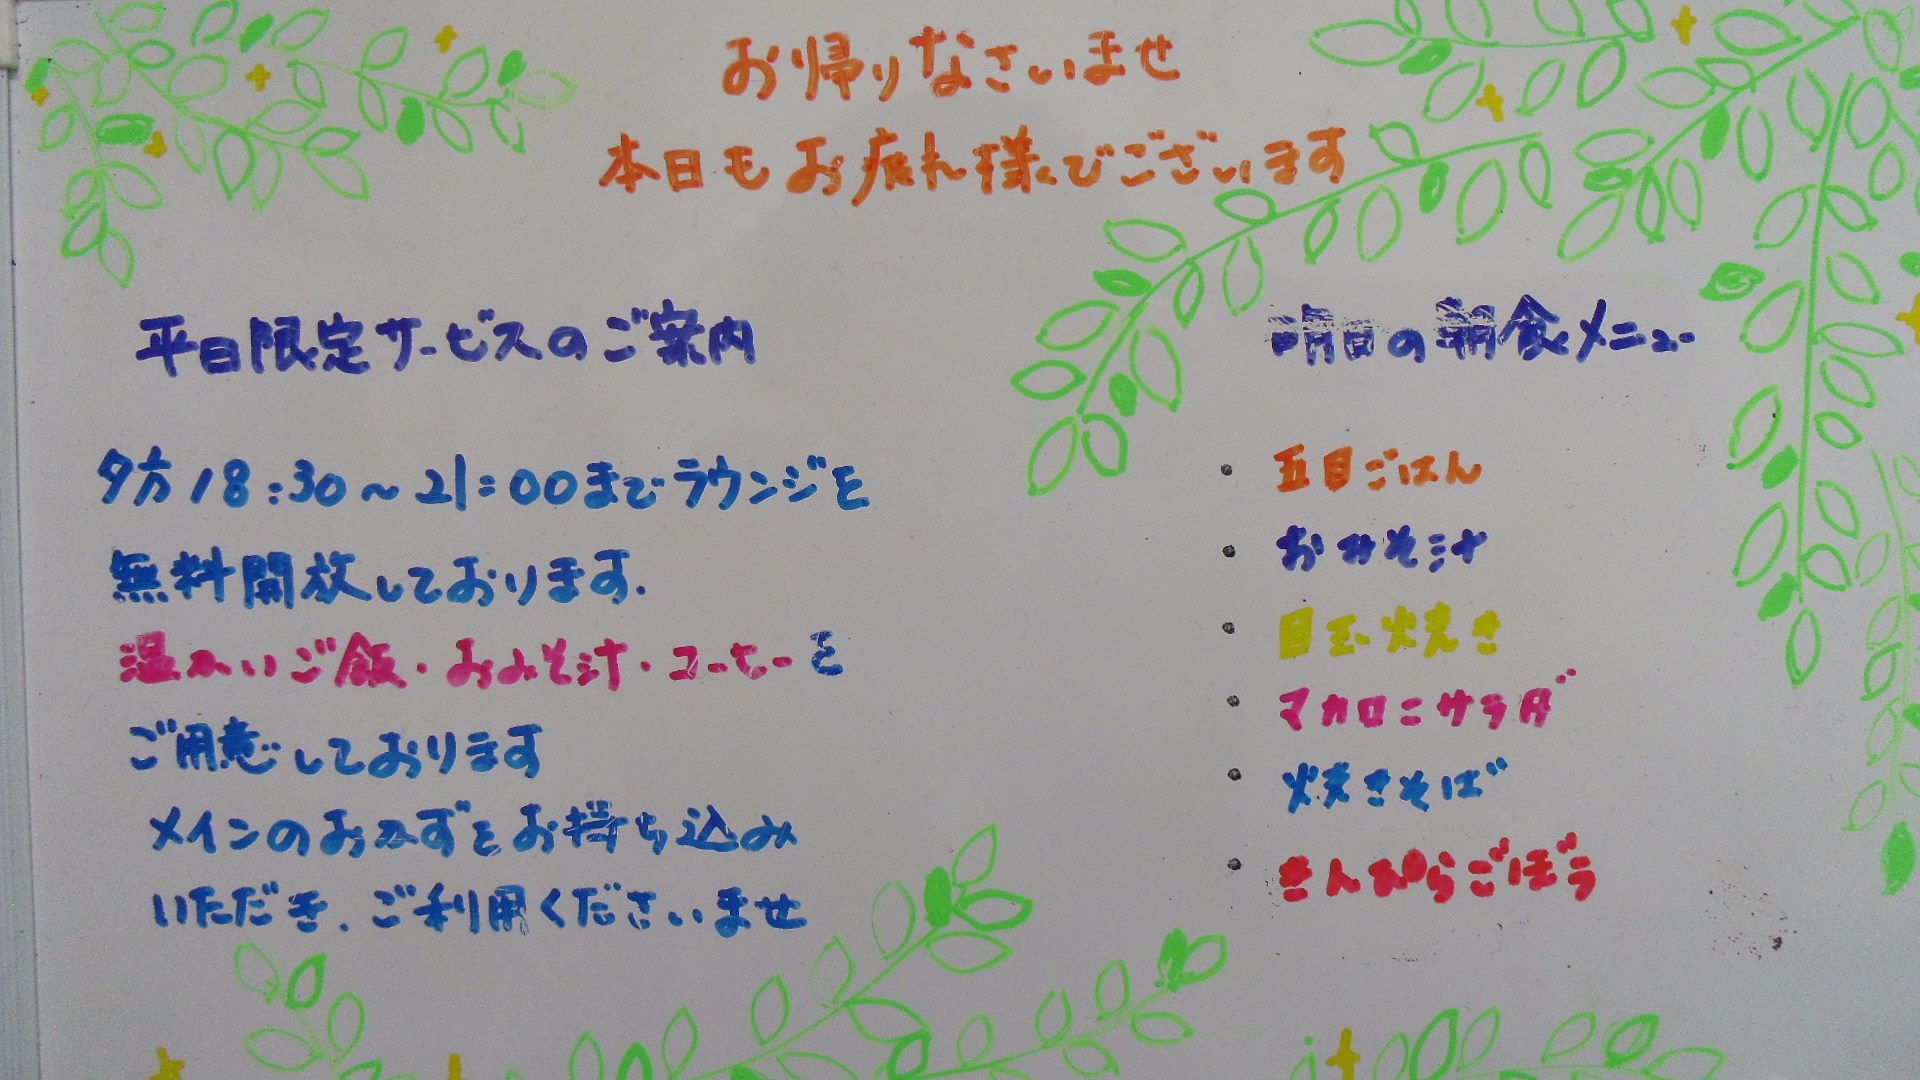 お帰りなさいませ
本日もお疲れ様でございます
平日限定サービスのご案内
夕方18:30～21:00までラウンジを
無料開放しております.
温かいご飯・おみそ汁・コーヒーを
ご用意しております
メインのおかずをお持ち込み
いただき、ご利用くださいませ
明日の朝食メニュー
・五目ごはん
・おみそ汁
・目玉焼き
・マカロニサラダ
・焼きそば
・きんぴらごぼう